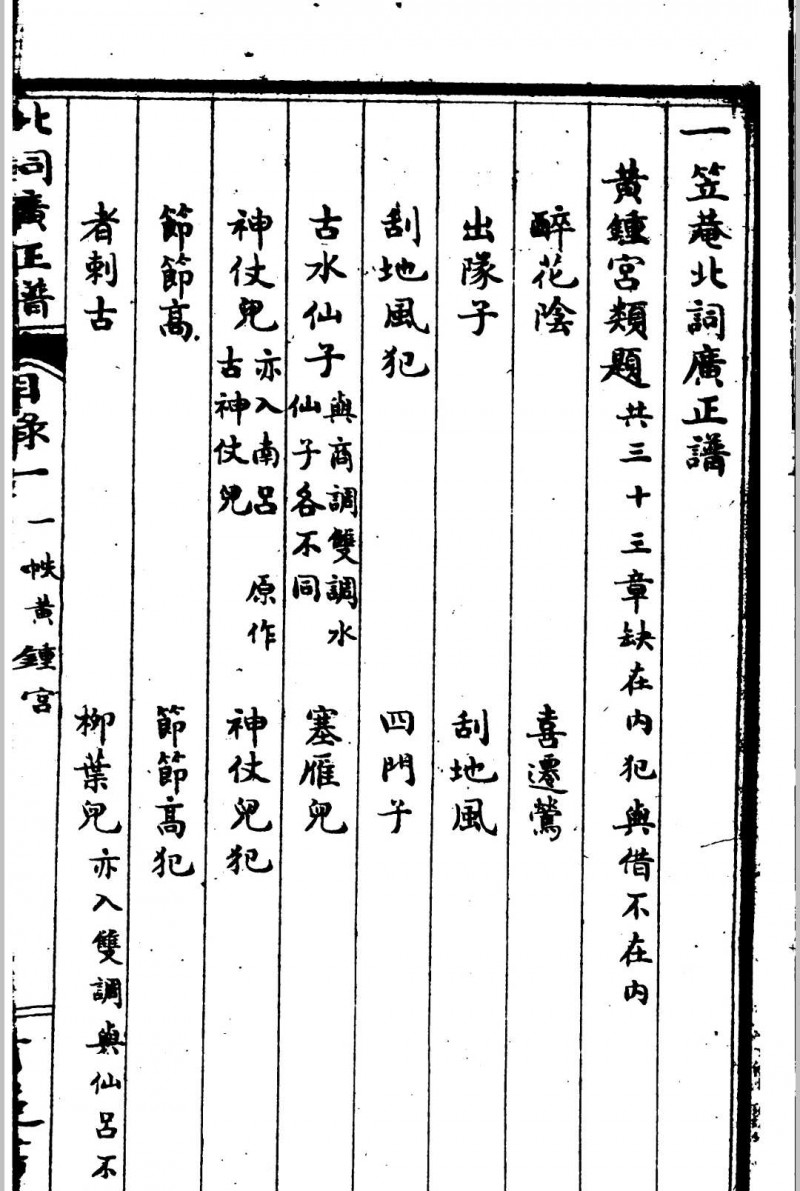 一笠菴北詞廣正譜
黃鍾宮類題共三十三章缺在內犯與借不在內
醉花陰 喜遷鶯
出隊子 刮地風
刮地風犯 四門子
古水仙子與商調雙調水仙子各不同 塞雁兒
神仗兒亦入南呂 原作古神仗兒 神仗兒犯
節節高 節節高犯
者剌古 柳葉兒亦入雙調與仙呂不
北詞廣正譜 目錄一 一帙黃鍾宮